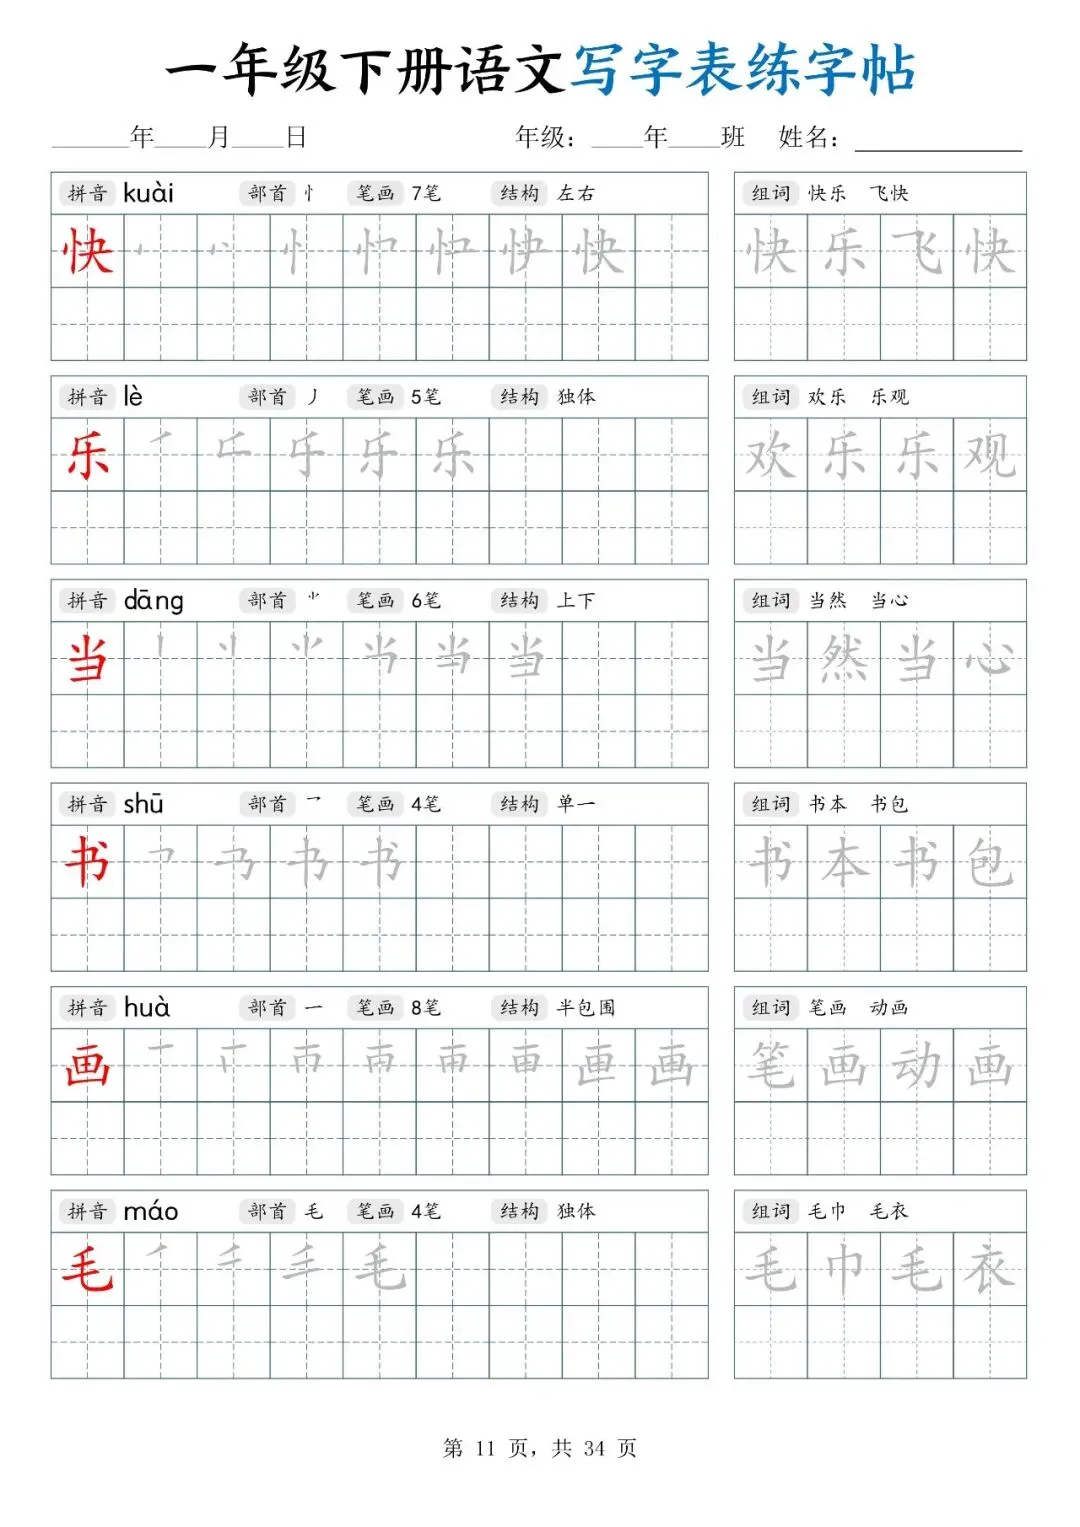 一年级下册语文写字表练字帖
______年____月____日 年级：____年____班 姓名：____________
拼音 kuài 部首 忄 笔画 7笔 结构 左右 组词 快乐 飞快
快 快 快 乐 飞 快
拼音 lè 部首 丿 笔画 5笔 结构 独体 组词 欢乐 乐观
乐 乐 欢 乐 乐 观
拼音 dāng 部首 ⺌ 笔画 6笔 结构 上下 组词 当然 当心
当 当 当 然 当 心
拼音 shū 部首 乛 笔画 4笔 结构 单一 组词 书本 书包
书 书 书 本 书 包
拼音 huà 部首 一 笔画 8笔 结构 半包围 组词 笔画 动画
画 画 笔 画 动 画
拼音 máo 部首 毛 笔画 4笔 结构 独体 组词 毛巾 毛衣
毛 毛 毛 巾 毛 衣
第 11 页，共 34 页